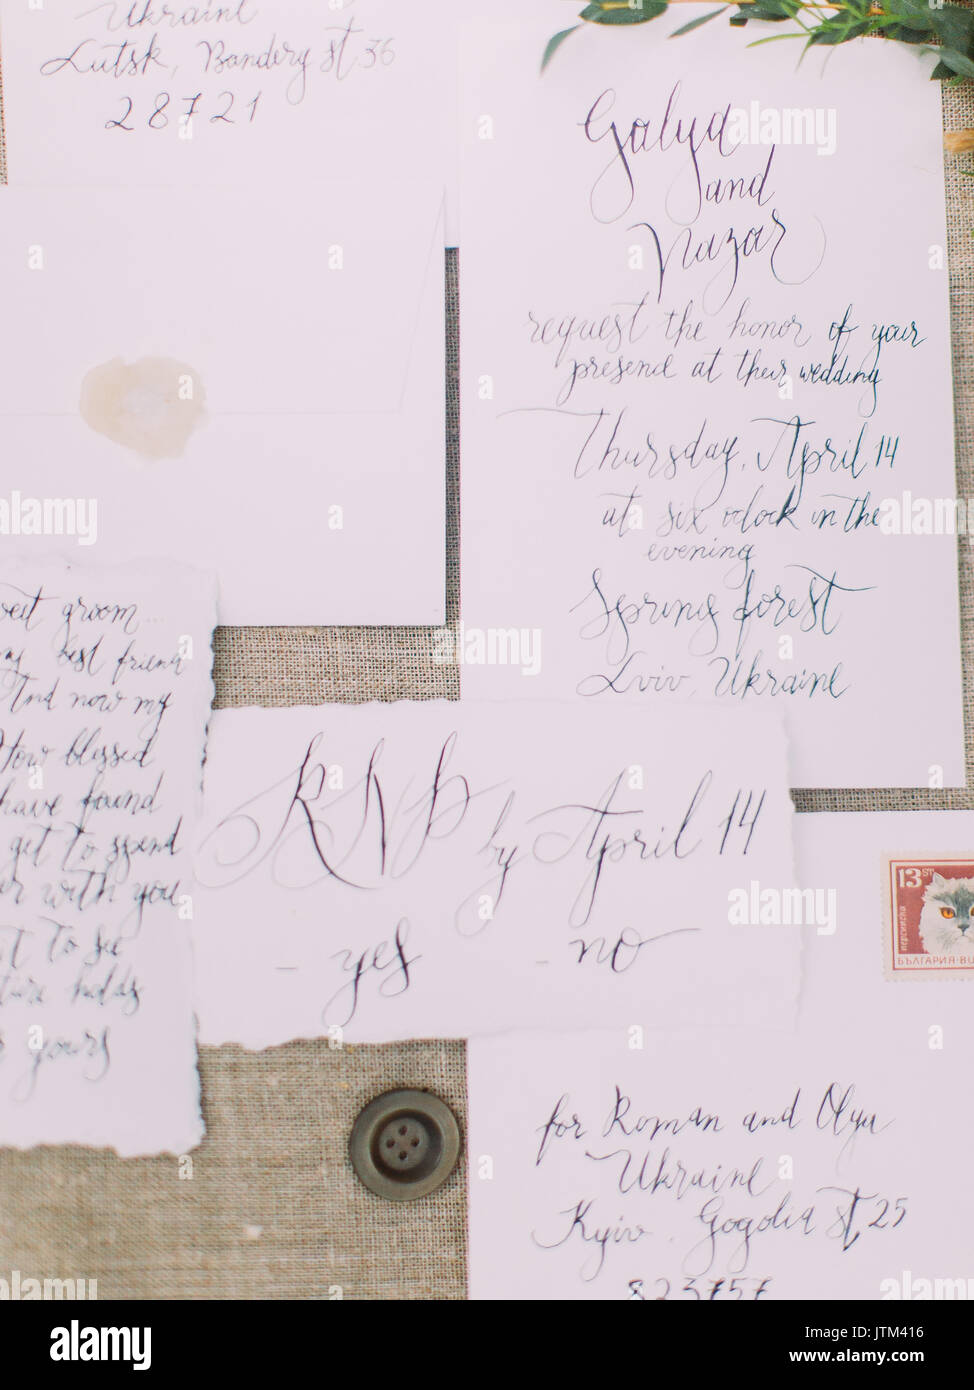 Ukraine
Lutsk, Bandery st 36
28721
Galya
and
Nazar
request the honor of your
presend at their wedding
Thursday, April 14
at six oclock in the
evening
Spring forest
Lviv, Ukraine
groom...
my best friend
And now my
How blessed
have found
get to spend
with you
to see
holds
yours
RSVP by April 14
- yes - no
13ST
персийска
БЪЛГАРИЯ-BU
for Roman and Olya
Ukraine
Kyiv, Gogolia st, 25
823757
alamy
a
alamy stock photo
Image ID: JTM416
www.alamy.com